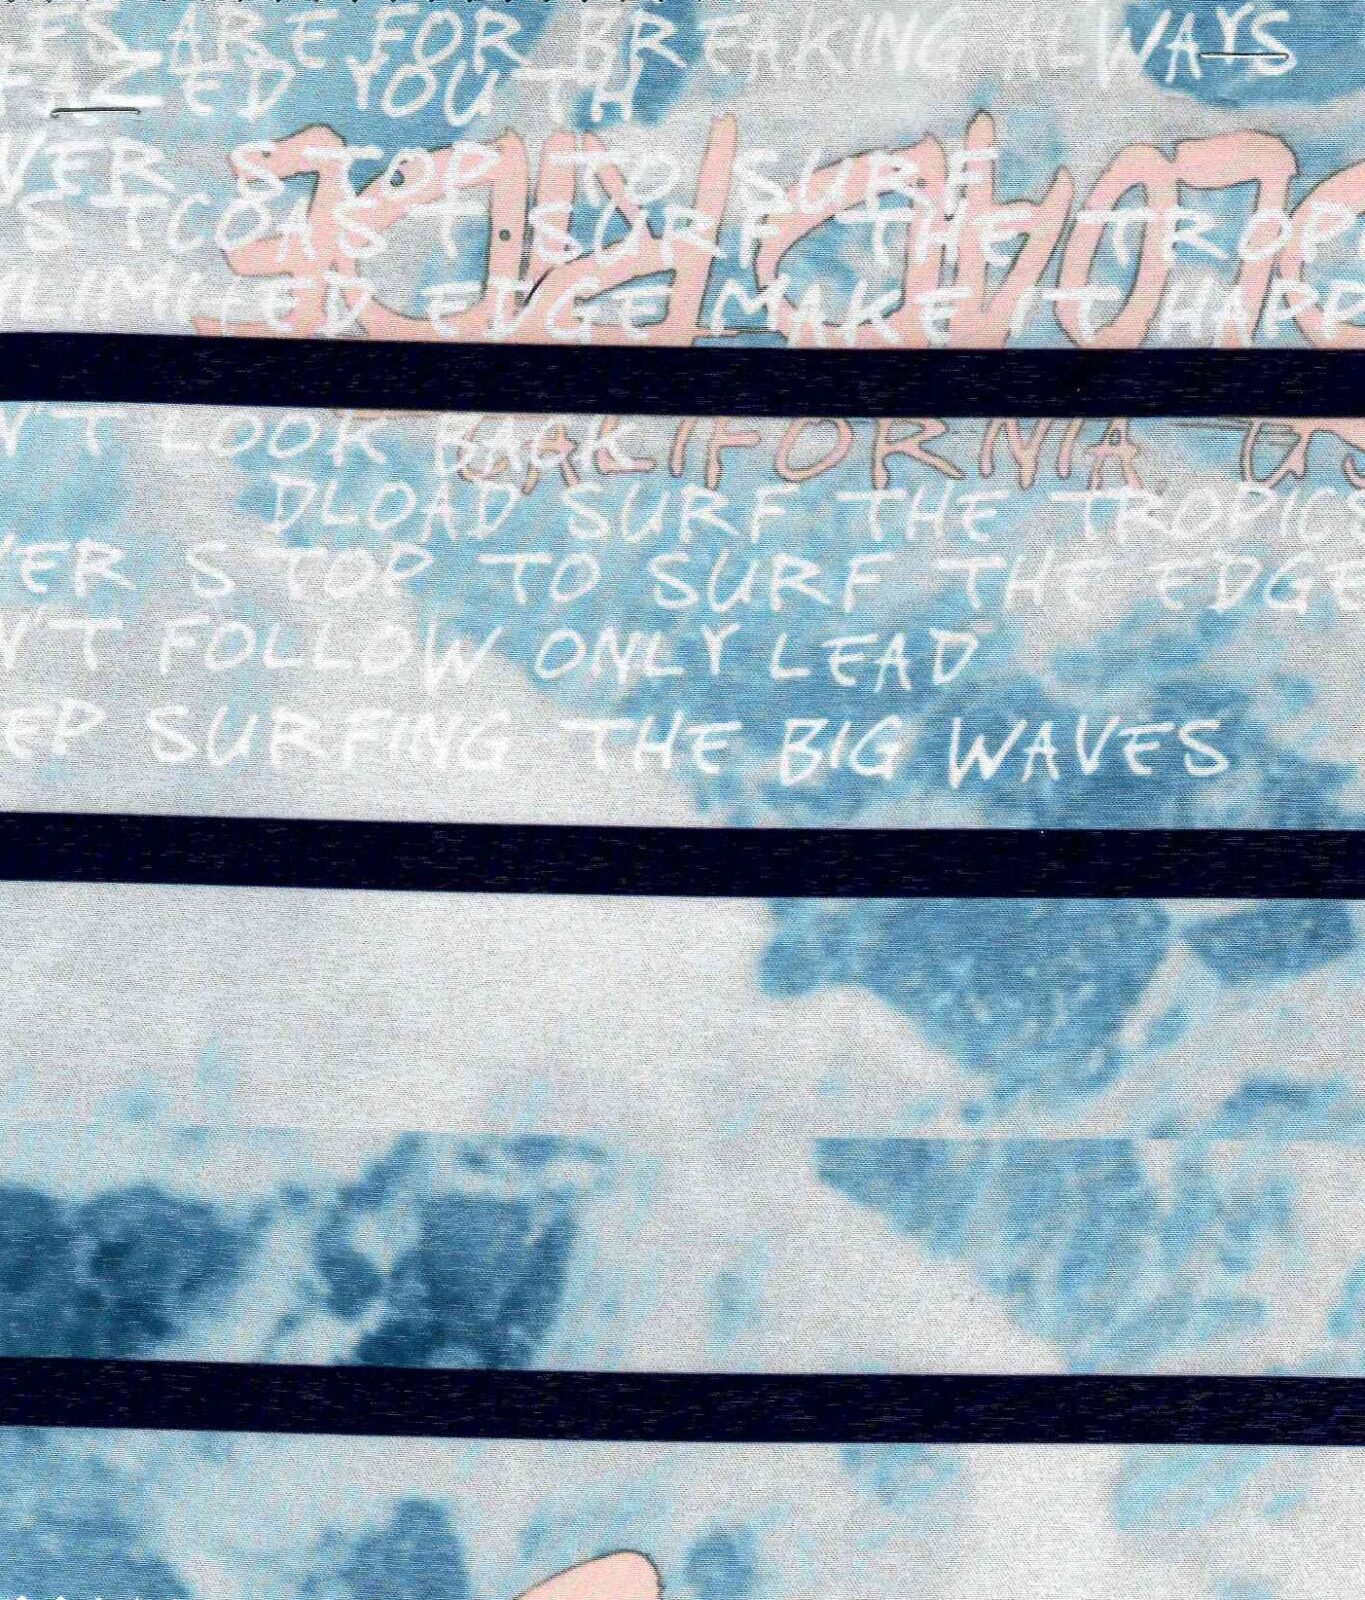 ES ARE FOR BREAKING ALWAYS
AZED YOUTH
VER STOP TO SURF
STCOAST SURF THE TROPI
LIMITED EDGE MAKE IT HAPP
N'T LOOK BACK
CALIFORNIA US
DLOAD SURF THE TROPICS
VER STOP TO SURF THE EDGE
N'T FOLLOW ONLY LEAD
EP SURFING THE BIG WAVES